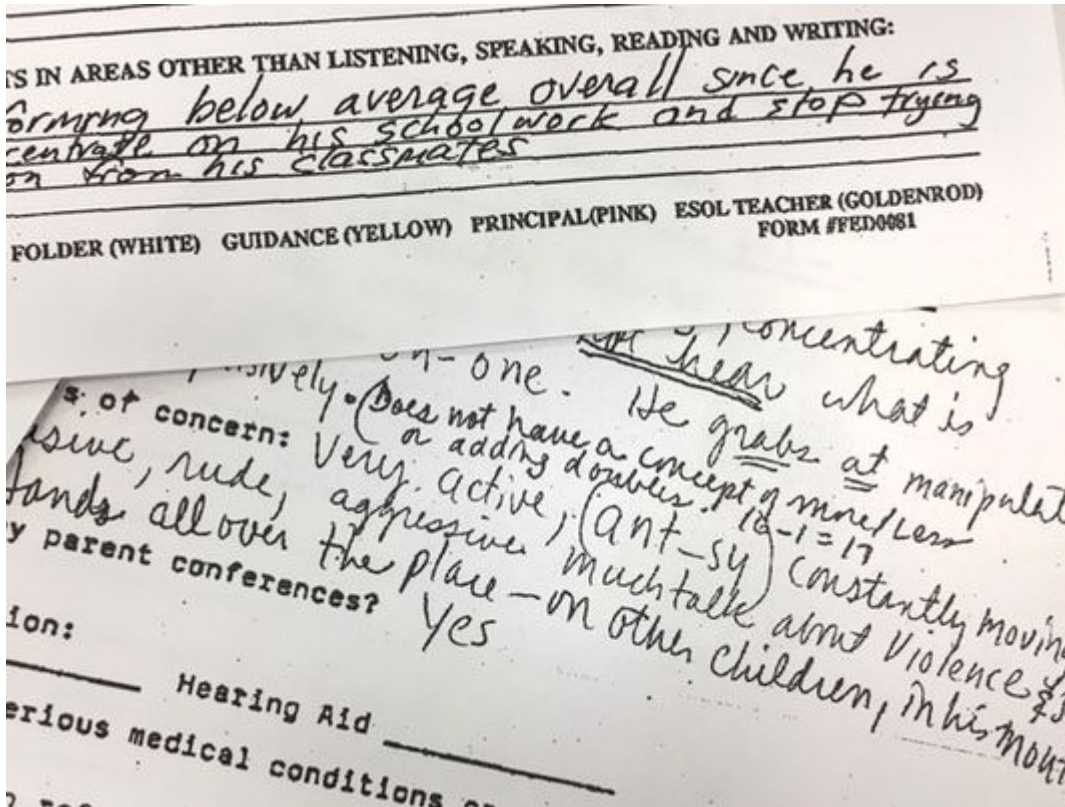 TS IN AREAS OTHER THAN LISTENING, SPEAKING, READING AND WRITING:
below average overall since he is
on his schoolwork and stop trying
from his classmates
FOLDER (WHITE) GUIDANCE (YELLOW) PRINCIPAL(PINK) ESOL TEACHER (GOLDENROD)
FORM #FED0081
concentrating
not hear what is
one. He grabs at manipulat
(Does not have a concept of more/less
or adding doubles.
s of concern: Very active, (ant-sy) constantly moving
rude, aggressive. much talk about violence
hands all over the place - on other children, in his mout
y parent conferences? Yes
ion:
Hearing Aid
erious medical conditions